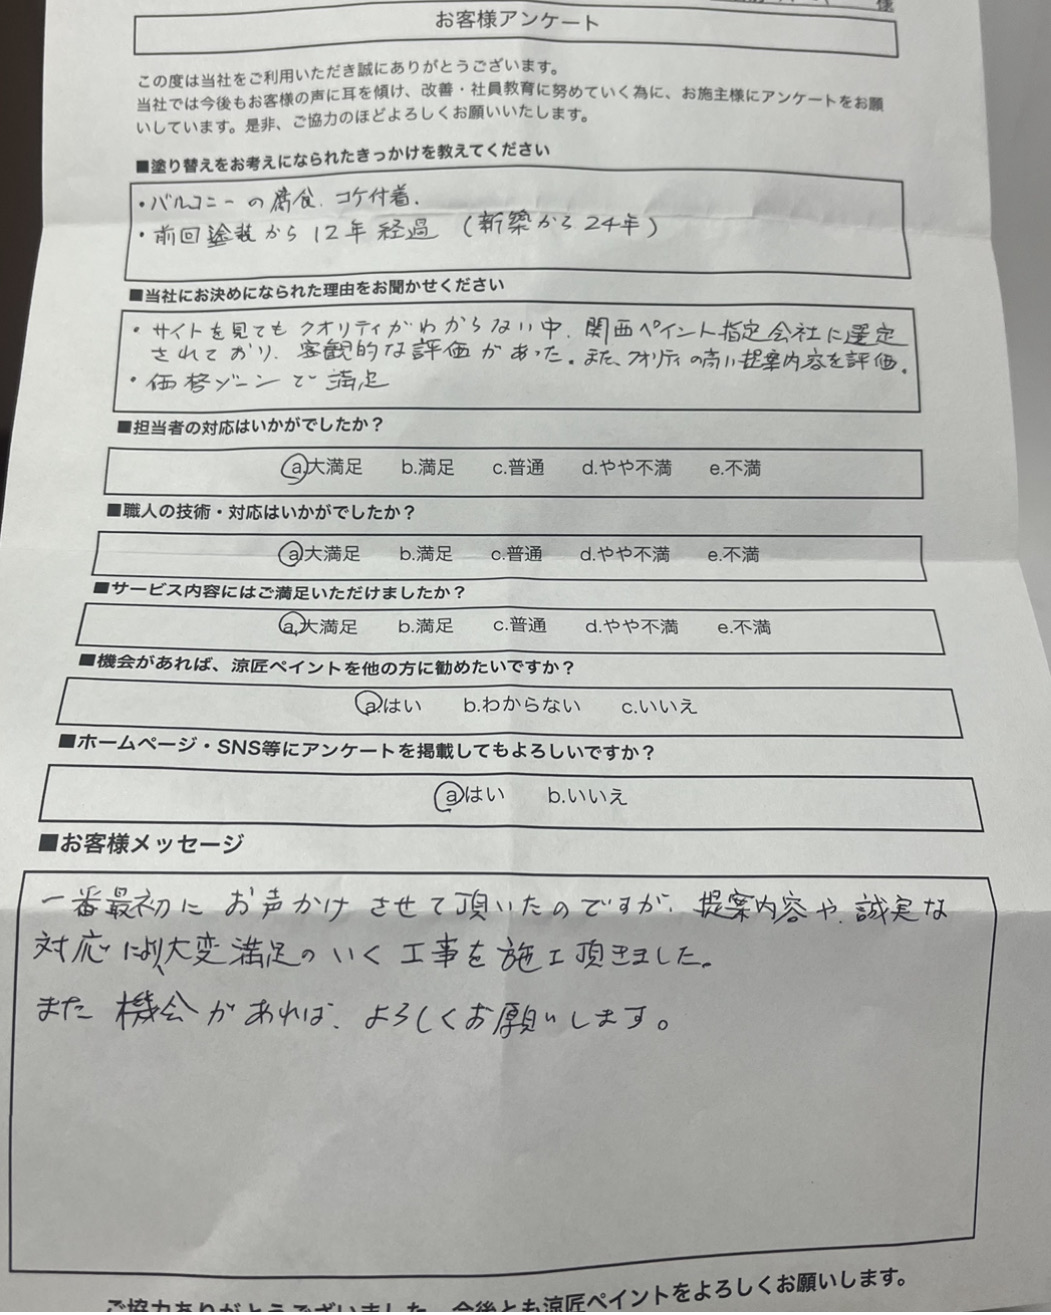 様
お客様アンケート
この度は当社をご利用いただき誠にありがとうございます。
当社では今後もお客様の声に耳を傾け、改善・社員教育に努めていく為に、お施主様にアンケートをお願
いしています。是非、ご協力のほどよろしくお願いいたします。
■塗り替えをお考えになられたきっかけを教えてください
・バルコニーの腐食、コケ付着、
・前回塗装から12年経過 (新築から24年)
■当社にお決めになられた理由をお聞かせください
・サイトを見てもクオリティがわからない中、関西ペイント指定会社に選定
されており、客観的な評価があった。また、クオリティの高い提案内容を評価。
・価格ゾーンで満足
■担当者の対応はいかがでしたか？
a.大満足 b.満足 c.普通 d.やや不満 e.不満
■職人の技術・対応はいかがでしたか？
a.大満足 b.満足 c.普通 d.やや不満 e.不満
■サービス内容にはご満足いただけましたか？
a.大満足 b.満足 c.普通 d.やや不満 e.不満
■機会があれば、涼匠ペイントを他の方に勧めたいですか？
a.はい b.わからない c.いいえ
■ホームページ・SNS等にアンケートを掲載してもよろしいですか？
a.はい b.いいえ
■お客様メッセージ
一番最初にお声かけさせて頂いたのですが、提案内容や、誠実な
対応により、大変満足のいく工事を施工頂きました。
また機会があれば、よろしくお願いします。
ご協力ありがとうございました。今後とも涼匠ペイントをよろしくお願いします。